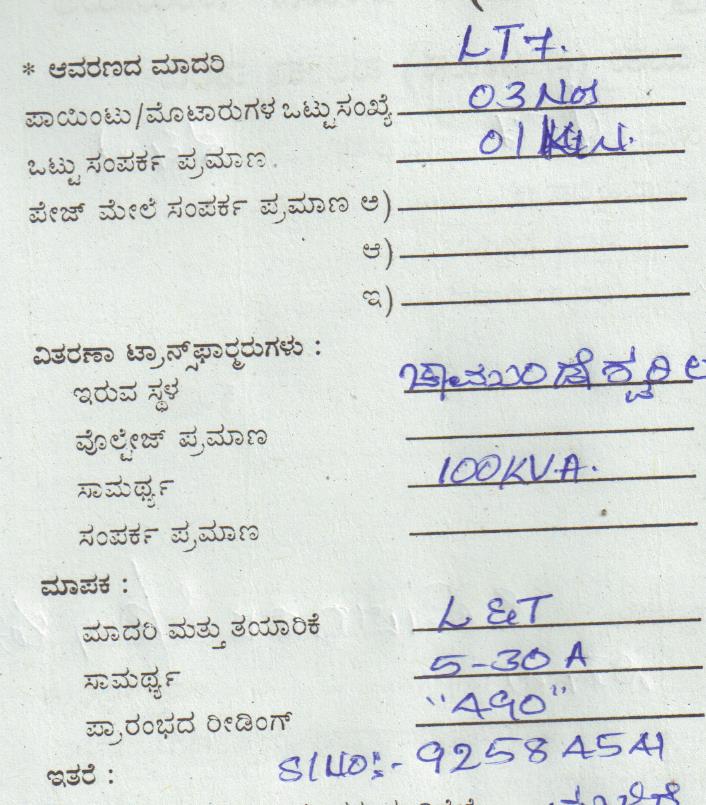 * ಆವರಣದ ಮಾದರಿ LT7.
ಪಾಯಿಂಟು/ಮೊಟಾರುಗಳ ಒಟ್ಟು ಸಂಖ್ಯೆ 03 Nos
ಒಟ್ಟು ಸಂಪರ್ಕ ಪ್ರಮಾಣ 01
ಪೇಜ್ ಮೇಲೆ ಸಂಪರ್ಕ ಪ್ರಮಾಣ ಅ)
ಆ)
ಇ)
ವಿತರಣಾ ಟ್ರಾನ್ಸ್‌ಫಾರ್‍ಮರುಗಳು :
ಇರುವ ಸ್ಥಳ ಚಾಮುಂಡೇಶ್ವರಿ
ವೊಲ್ಟೇಜ್ ಪ್ರಮಾಣ
ಸಾಮರ್ಥ್ಯ 100 KVA.
ಸಂಪರ್ಕ ಪ್ರಮಾಣ
ಮಾಪಕ :
ಮಾದರಿ ಮತ್ತು ತಯಾರಿಕೆ L&T
ಸಾಮರ್ಥ್ಯ 5-30 A
ಪ್ರಾರಂಭದ ರೀಡಿಂಗ್ "490"
ಇತರೆ : Sl No:- 92584541